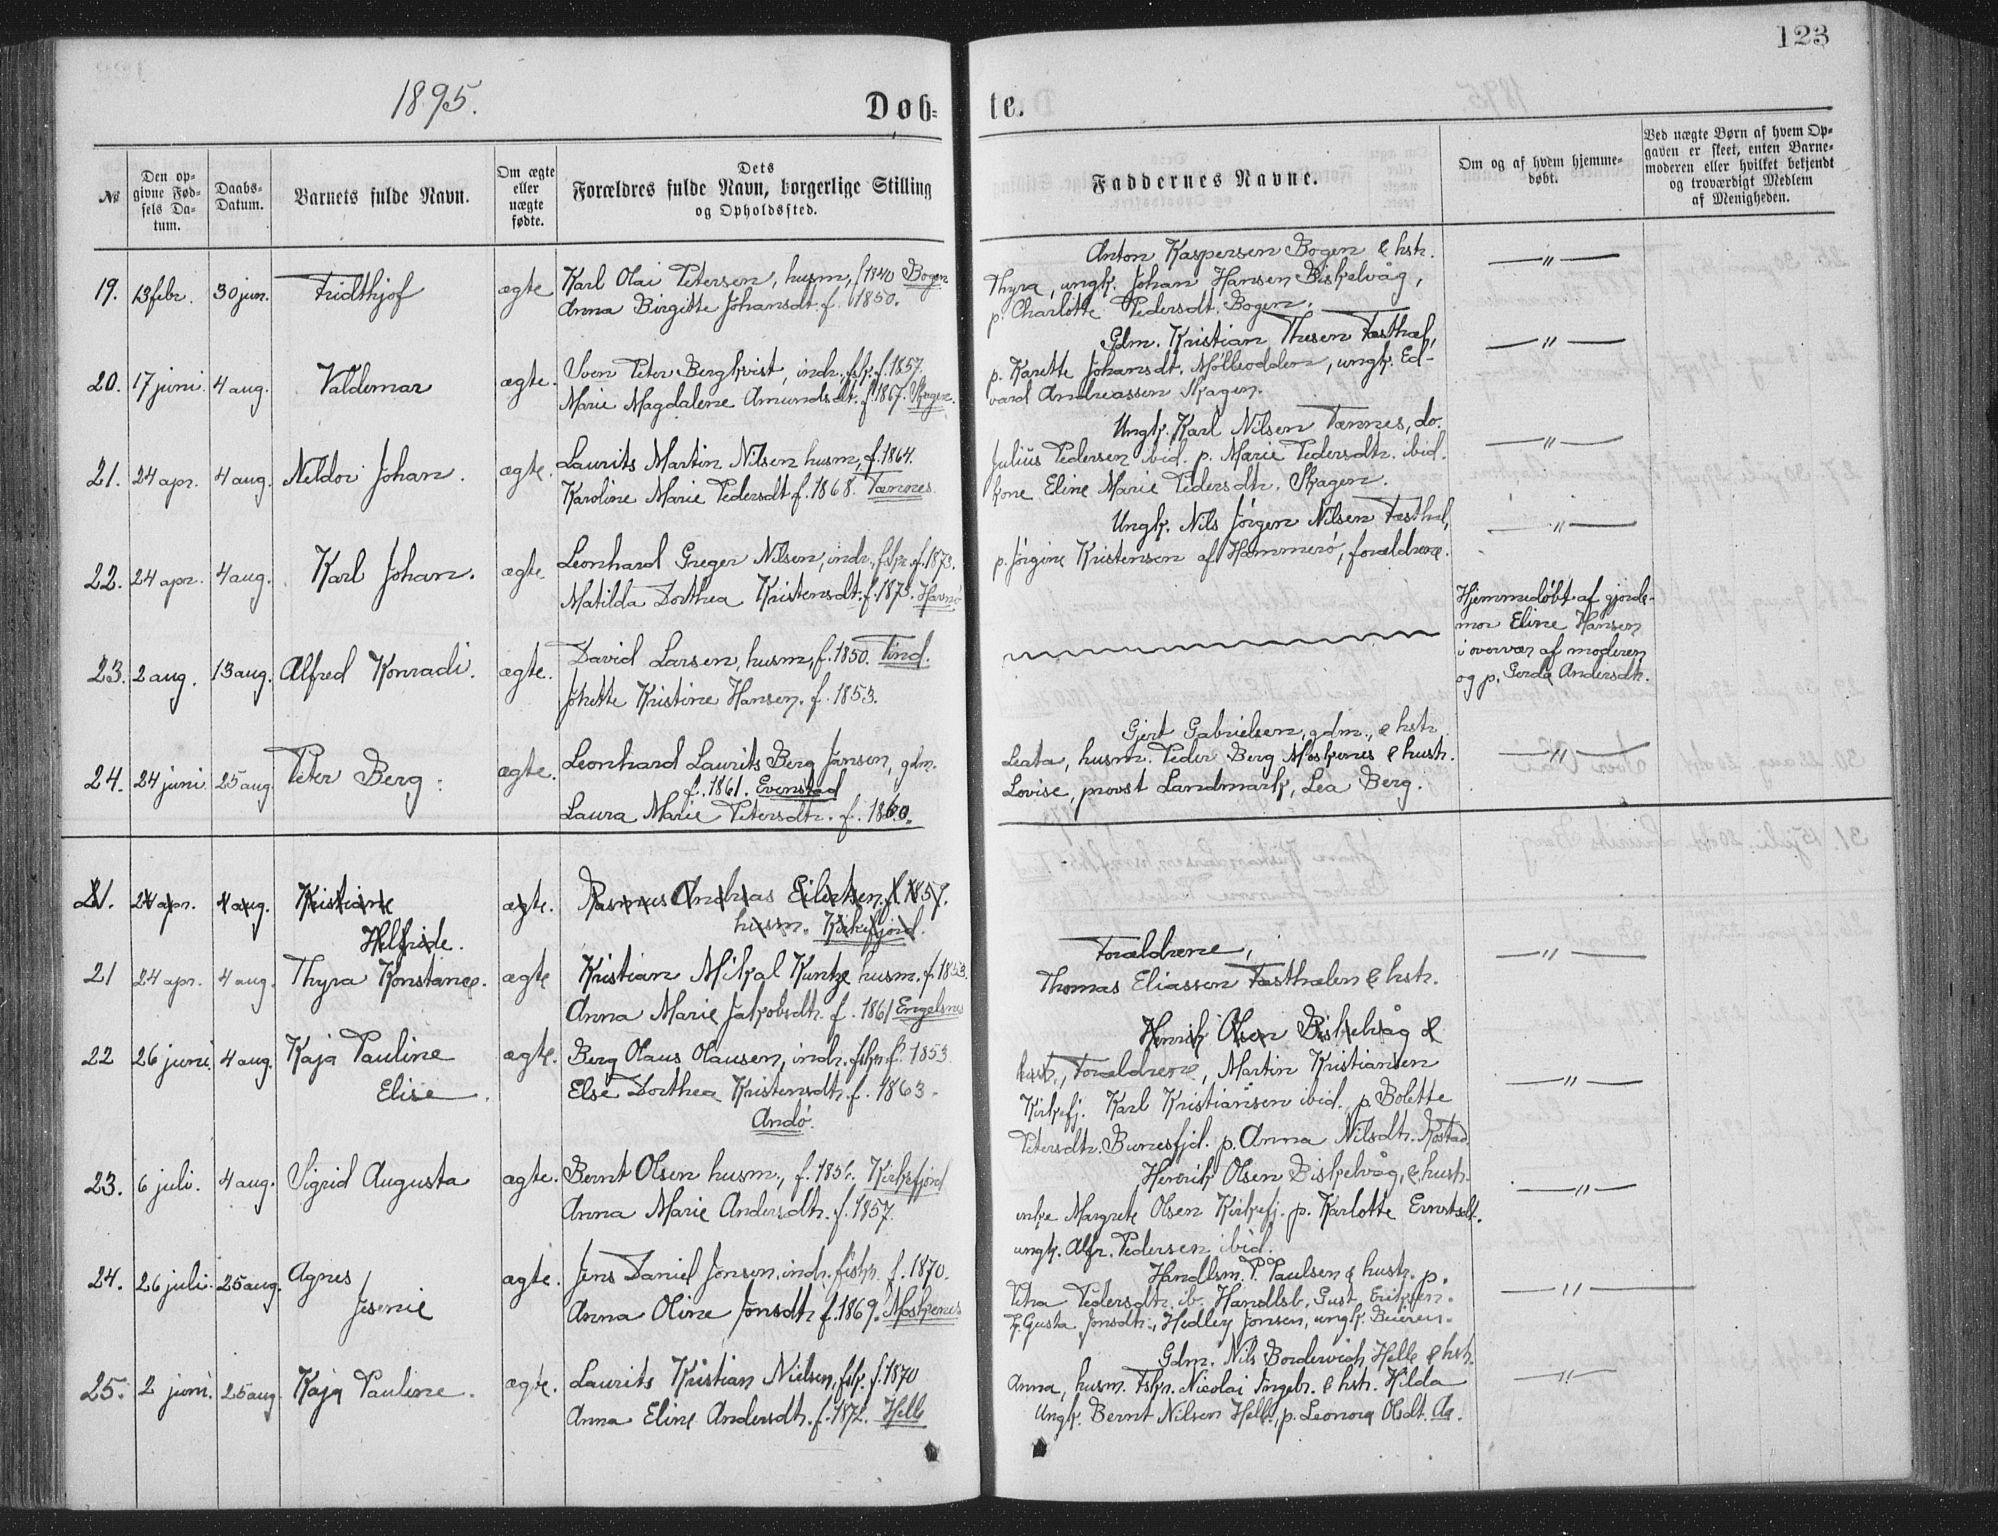 123
1895.
Døb-
te.
№
Den op-
givne Fød-
sels Da-
tum.
Daabs-
Datum.
Barnets fulde Navn.
Om ægte
eller
uægte
fødte.
Dets
Forældres fulde Navn, borgerlige Stilling
og Opholdssted.
Faddernes Navne.
Om og af hvem hjemme-
døbt.
Ved uægte Børn af hvem Op-
gaven er skeet, enten Barne-
moderen eller hvilket bekjendt
og troværdigt Medlem
af Menigheden.
19. 13 febr. 30 jun. Fridthjof ægte
Karl Olai Petersen, husm, f 1840 Bogen
Anna Birgitte Johansdt. f. 1850.
Anton Kaspersen Bogen & hstr.
Thyra, ungk. Johan Hansen Biskelvåg,
p. Charlotte Pedersdt. Bogen.
— " —
20. 17 juni. 4 aug. Valdemar ægte.
Sven Peter Bergkvist, indr. fsk. f. 1857.
Marie Magdalene Amundsdt. f. 1867. Skagen.
Gdm. Kristian Thesen Tæsthæl,
p. Karette Johansdt. Mølleodden, ungk. Ed-
vard Andreassen Skagen.
— " —
21. 24 apr. 4 aug. Neldor Johan. ægte.
Laurits Martin Nilsen husm, f. 1864.
Karoline Marie Pedersdt f. 1868. Tennes
Ungk. Karl Nilsen Tennes, do.
Julius Pedersen ibid. p. Marie Pedersdtr. ibid.
kone Eline Marie Pedersdtr. Skagen.
— " —
22. 24 apr. 4 aug. Karl Johan. ægte
Leonhard Greger Nilsen, indr. fskr. f. 1873.
Matilda Dorthea Kristensdt. f. 1873.
Ungk. Nils Jørgen Nilsen Tæsthæl,
p. Jørgine Kristensen af Hammerö, forældrene.
— " —
23. 2 aug. 13 aug. Alfred Konradi. ægte.
David Larsen, husm, f. 1850. Tind.
Johette Kristine Hansen. f. 1853.
Hjemmedøbt af gjorde-
mor Eline Hansen
i overvær af moderen
og p. Gerda Andersdtr.
24. 24 juni 25 aug. Peter Berg. ægte.
Leonhard Laurits Berg Jansen, gdm.
f. 1861. Evenstad
Laura Marie Petersdtr. f. 1860.
Gjert Gabrielsen, gdm., & hstr
Leata, husm. Peder Berg Moskenes & hustr.
Lovise, provst Landmark, Lea Berg.
— " —
21. 24 apr. 4 aug. Kristiane
Helfride. ægte.
Rasmus Andreas Eilertsen, f. 1857.
husm. Kirkefjord.
21 24 apr. 4 aug. Thyra Konstance. ægte
Kristian Mikal Kuntze husm. f. 1853.
Anna Marie Jakobsdtr. f. 1861 Engelsnes
Forældrene,
Thomas Eliassen Tæsthælen & hstr.
— " —
22 26 juni. 4 aug. Kaja Pauline
Elise. ægte.
Berg Olaus Olausen, indr. fskr. f. 1853.
Else Dorthea Kristensdtr. f. 1863.
Andö.
Henrik Olsen Biskelvåg &
hust., Forældrene, Martin Kristiansen
Kirkefj. Karl Kristiansen ibid. p. Bolette
Petersdtr. Bunesfjd. p. Anna Nilsdtr. Rostad
— " —
23. 6 juli. 4 aug. Sigrid Augusta ægte.
Bernt Olsen husm., f. 1856. Kirkefjord
Anna Marie Andersdtr. f. 1857.
Henrik Olsen Biskelvåg, & hustr.
enke Margrete Olsen Kirkefj. p. Karlotte Ernstsdt.
ungk. Alfr. Pedersen ibid.
— " —
24. 26 juli. 25 aug. Agnes
Jsenie ægte.
Jens Daniel Jonsen, indr. fiskr. f. 1870.
Anna Oline Jonsdtr f. 1869. Moskenes
Handlsm. P. Paulsen & hustr. p.
Petra Pedersdtr. ib. Handlsb. Gust. Eriksen.
p. Gusta Jonsdtr., Hedley Jonsen, ungk. Beieren.
— " —
25. 2 juni. 25 aug. Kaja Pauline. ægte.
Laurits Kristian Nielsen, fsk. f. 1870
Anna Eline Andersdtr. f. 1872. Helle
Gdm. Nils Bordervich Helle & hstr.
Anna, husm. Fskr. Nicolai Ingebr. & hstr. Hilda
Ungk. Bernt Nilsen Helle, p. Leonora Olsdt. Aa.
— " —